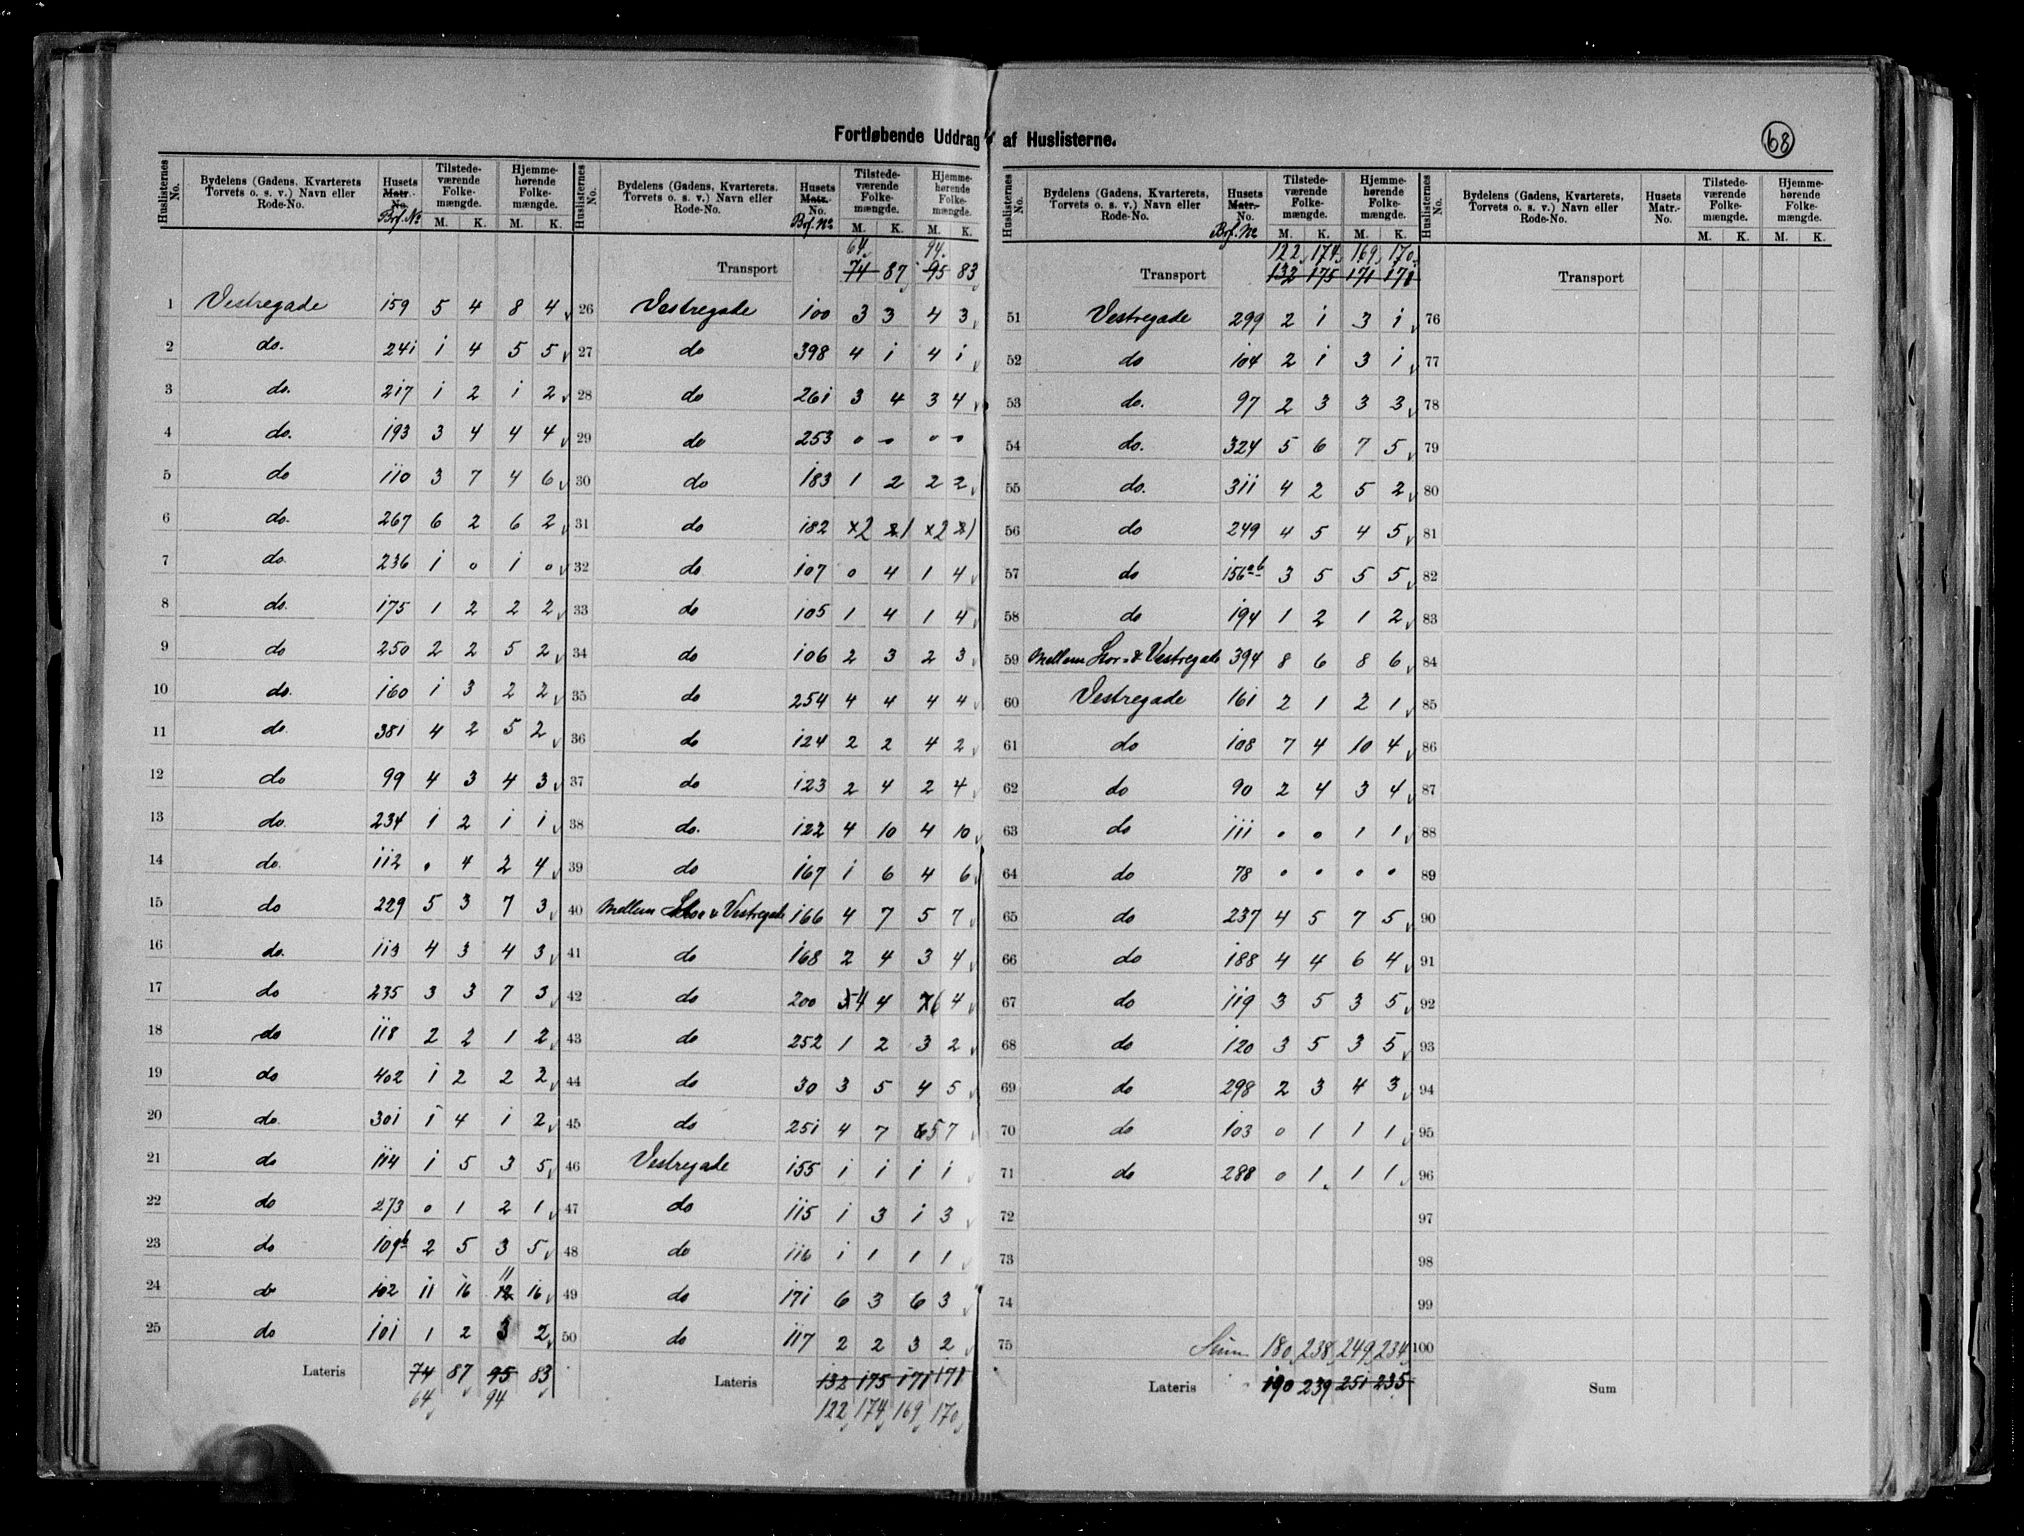 Fortløbende Uddrag af Huslisterne.
68
Huslisternes No. | Bydelens (Gadens, Kvarterets Torvets o. s. v.) Navn eller Rode-No. | Husets Matr.-No. Brf. No | Tilstedeværende Folkemængde. M. K. | Hjemmehørende Folkemængde. M. K.
1 Vestregade 159 5 4 8 4
2 do. 241 1 4 5 5
3 do. 217 1 2 1 2
4 do. 193 3 4 4 4
5 do 110 3 7 4 6
6 do. 267 6 2 6 2
7 do. 236 1 0 1 0
8 do. 175 1 2 2 2
9 do 250 2 2 5 2
10 do. 160 1 3 2 2
11 do. 381 4 2 5 2
12 do 99 4 3 4 3
13 do. 234 1 2 1 1
14 do. 112 0 4 2 4
15 do 229 5 3 7 3
16 do. 113 4 3 4 3
17 do 235 3 3 7 3
18 do 118 2 2 1 2
19 do 402 1 2 2 2
20 do. 301 1 4 1 2
21 do 114 1 5 3 5
22 do 273 0 1 2 1
23 do 109b 2 5 3 5
24 do 102 11 16 12 11 16
25 do 101 1 2 3 2
Lateris 74 87 95 83
64 94
Huslisternes No. | Bydelens (Gadens, Kvarterets, Torvets o. s. v.) Navn eller Rode-No. | Husets Matr.-No. Brf. No | Tilstedeværende Folkemængde. M. K. | Hjemmehørende Folkemængde. M. K.
64 94
Transport 74 87 95 83
26 Vestregade 100 3 3 4 3
27 do 398 4 1 4 1
28 do 261 3 4 3 4
29 do 253 0 0 0 0
30 do 183 1 2 2 2
31 do 182 2 1 2 1
32 do 107 0 4 1 4
33 do 105 1 4 1 4
34 do 106 2 3 2 3
35 do 254 4 4 4 4
36 do 124 2 2 4 2
37 do 123 2 4 2 4
38 do. 122 4 10 4 10
39 do 167 1 6 4 6
40 Mellem Stor & Vestregade 166 4 7 5 7
41 do 168 2 4 3 4
42 do 200 5 4 4 7 6 4
43 do 252 1 2 3 2
44 do 30 3 5 4 5
45 do 251 4 7 6 5 7
46 Vestregade 155 1 1 1 1
47 do 115 1 3 1 3
48 do 116 1 1 1 1
49 do 171 6 3 6 3
50 do 117 2 2 3 2
Lateris 132 175 171 171
122 174 169 170
Huslisternes No. | Bydelens (Gadens, Kvarterets, Torvets o. s. v.) Navn eller Rode-No. | Husets Matr.-No. Brf. No | Tilstedeværende Folkemængde. M. K. | Hjemmehørende Folkemængde. M. K.
122 174 169 170
Transport 132 175 171 171
51 Vestregade 299 2 1 3 1
52 do 104 2 1 3 1
53 do. 97 2 3 3 3
54 do. 324 5 6 7 5
55 do. 311 4 2 5 2
56 do 249 4 5 4 5
57 do 156a-b 3 5 5 5
58 do 194 1 2 1 2
59 Mellem Stor- & Vestregade 394 8 6 8 6
60 Vestregade 161 2 1 2 1
61 do 108 7 4 10 4
62 do 90 2 4 3 4
63 do 111 0 0 1 1
64 do 78 0 0 0 0
65 do 237 4 5 7 5
66 do 188 4 4 6 4
67 do 119 3 5 3 5
68 do 120 3 5 3 5
69 do 298 2 3 4 3
70 do 103 0 1 1 1
71 do 288 0 1 1 1
72
73
74
75 Sum 180 238 249 234
Lateris 190 239 251 235
Huslisternes No. | Bydelens (Gadens, Kvarterets, Torvets o. s. v.) Navn eller Rode-No. | Husets Matr.-No. | Tilstedeværende Folkemængde. M. K. | Hjemmehørende Folkemængde. M. K.
Transport
76
77
78
79
80
81
82
83
84
85
86
87
88
89
90
91
92
93
94
95
96
97
98
99
100
Sum